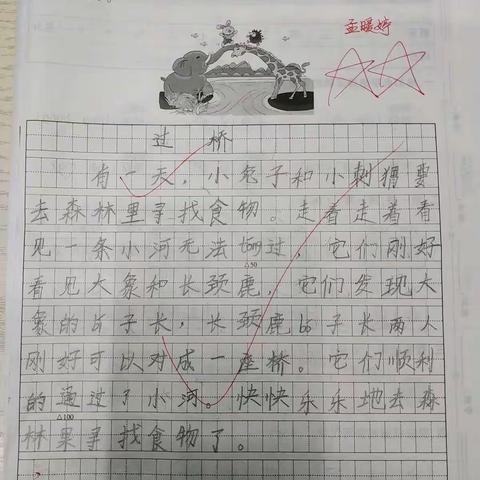 孟暖婷
过桥
有一天，小兔子和小刺猬要
去森林里寻找食物。走着走着看
见一条小河无法tōng过，它们刚好
看见大象和长颈鹿，它们发现大
△50
象的bí子长，长颈鹿bó子长两人
刚好可以对成一座桥。它们顺利
的通过了小河。快快乐乐地去森
△100
林里寻找食物了。